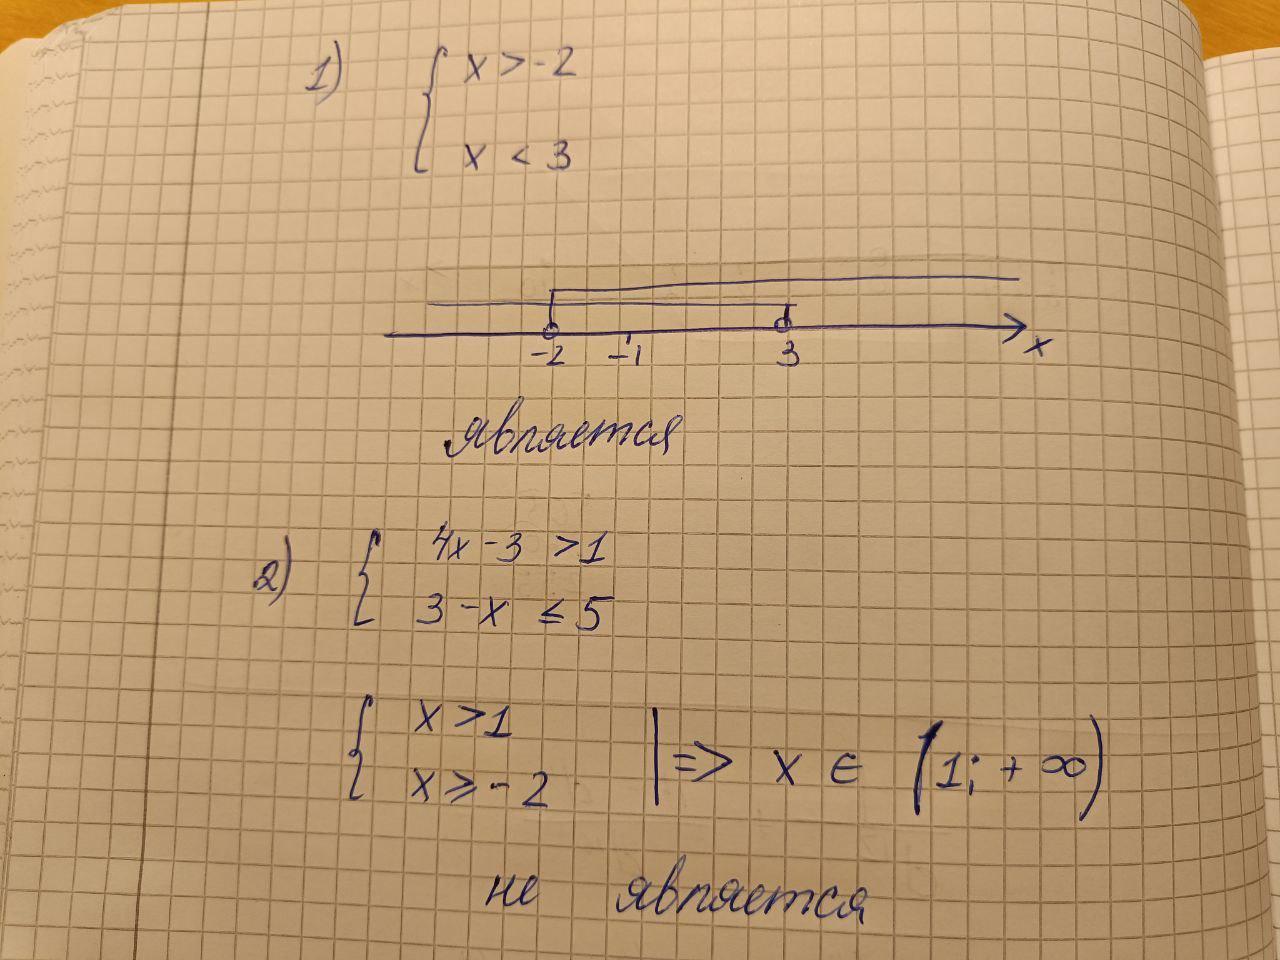 1) { x > -2
x < 3
-2 -1 3 x
является
2) { 4x - 3 > 1
3 - x ≤ 5
{ x > 1
x ≥ -2 | => x ∈ (1; + ∞)
не является